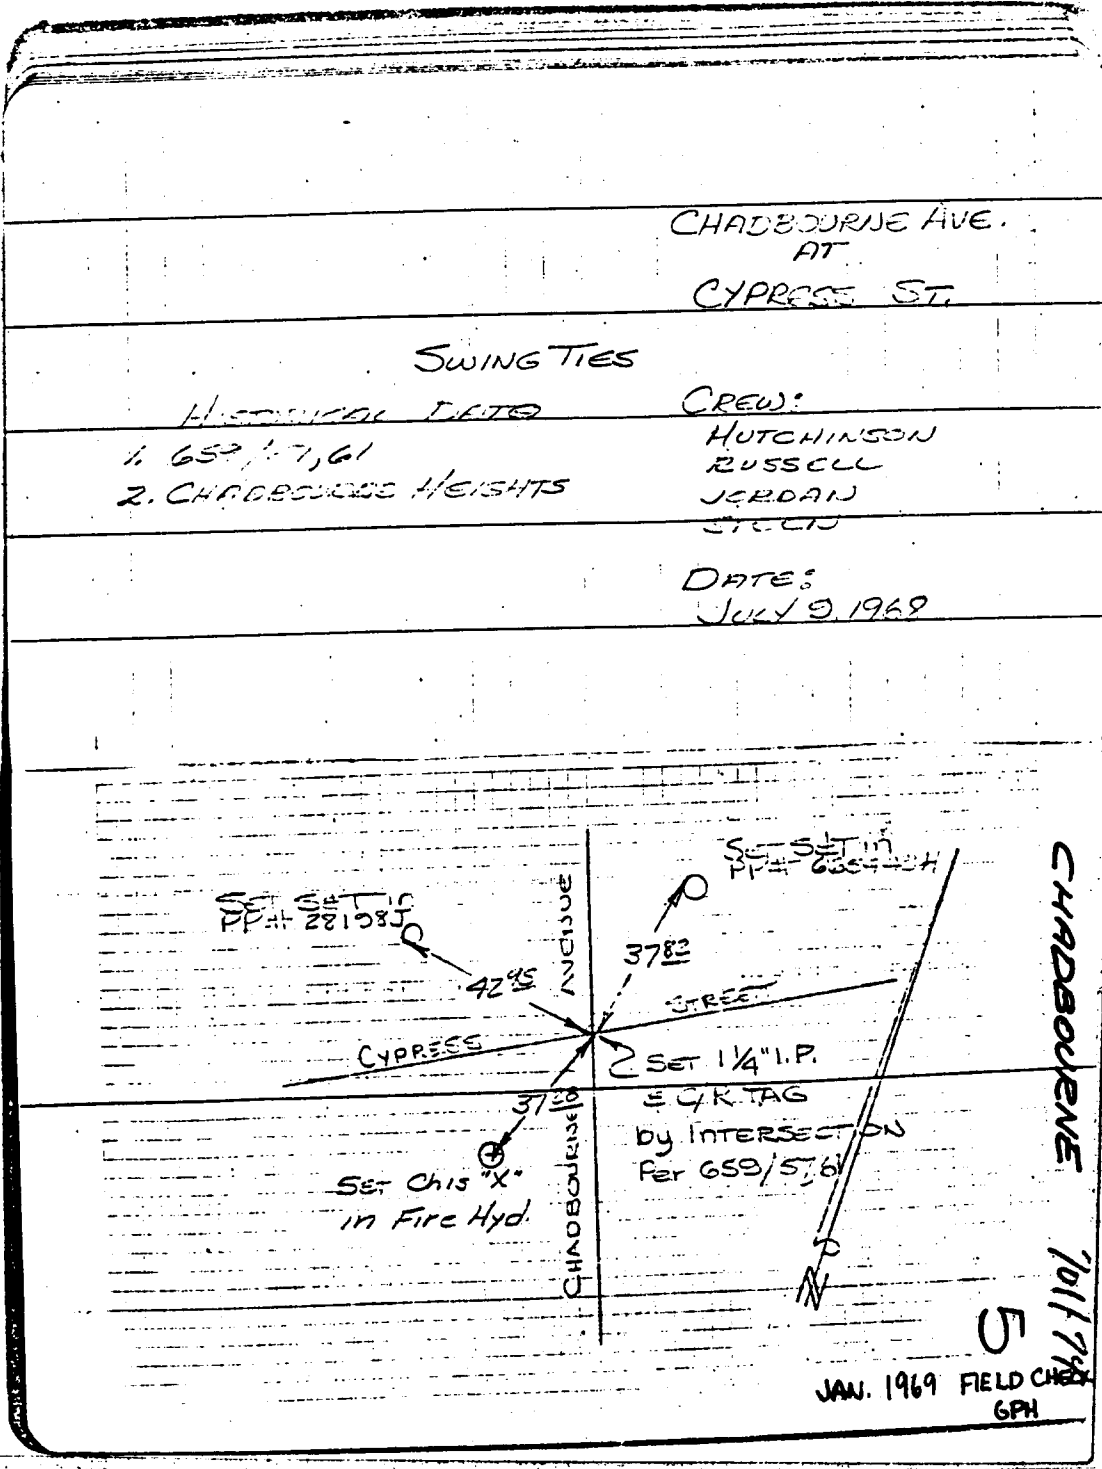 CHADBOURNE AVE.
AT
CYPRESS ST.
SWING TIES
HISTORICAL DATA
1. 659/57,61
2. CHADBOURNE HEIGHTS
CREW:
HUTCHINSON
RUSSELL
JORDAN
DATE:
JULY 9, 1968
SET S&T in
PP# 28198J
SET S&T in
PP#
AVENUE
42 95
37 82
STREET
CYPRESS
SET 1 1/4" I.P.
& C/K TAG
by INTERSECTION
Per 659/57,61
37
SET Chis "X"
in Fire Hyd.
CHADBOURNE
N
CHADBOURNE
5
JAN. 1969 FIELD CHECK
GPH